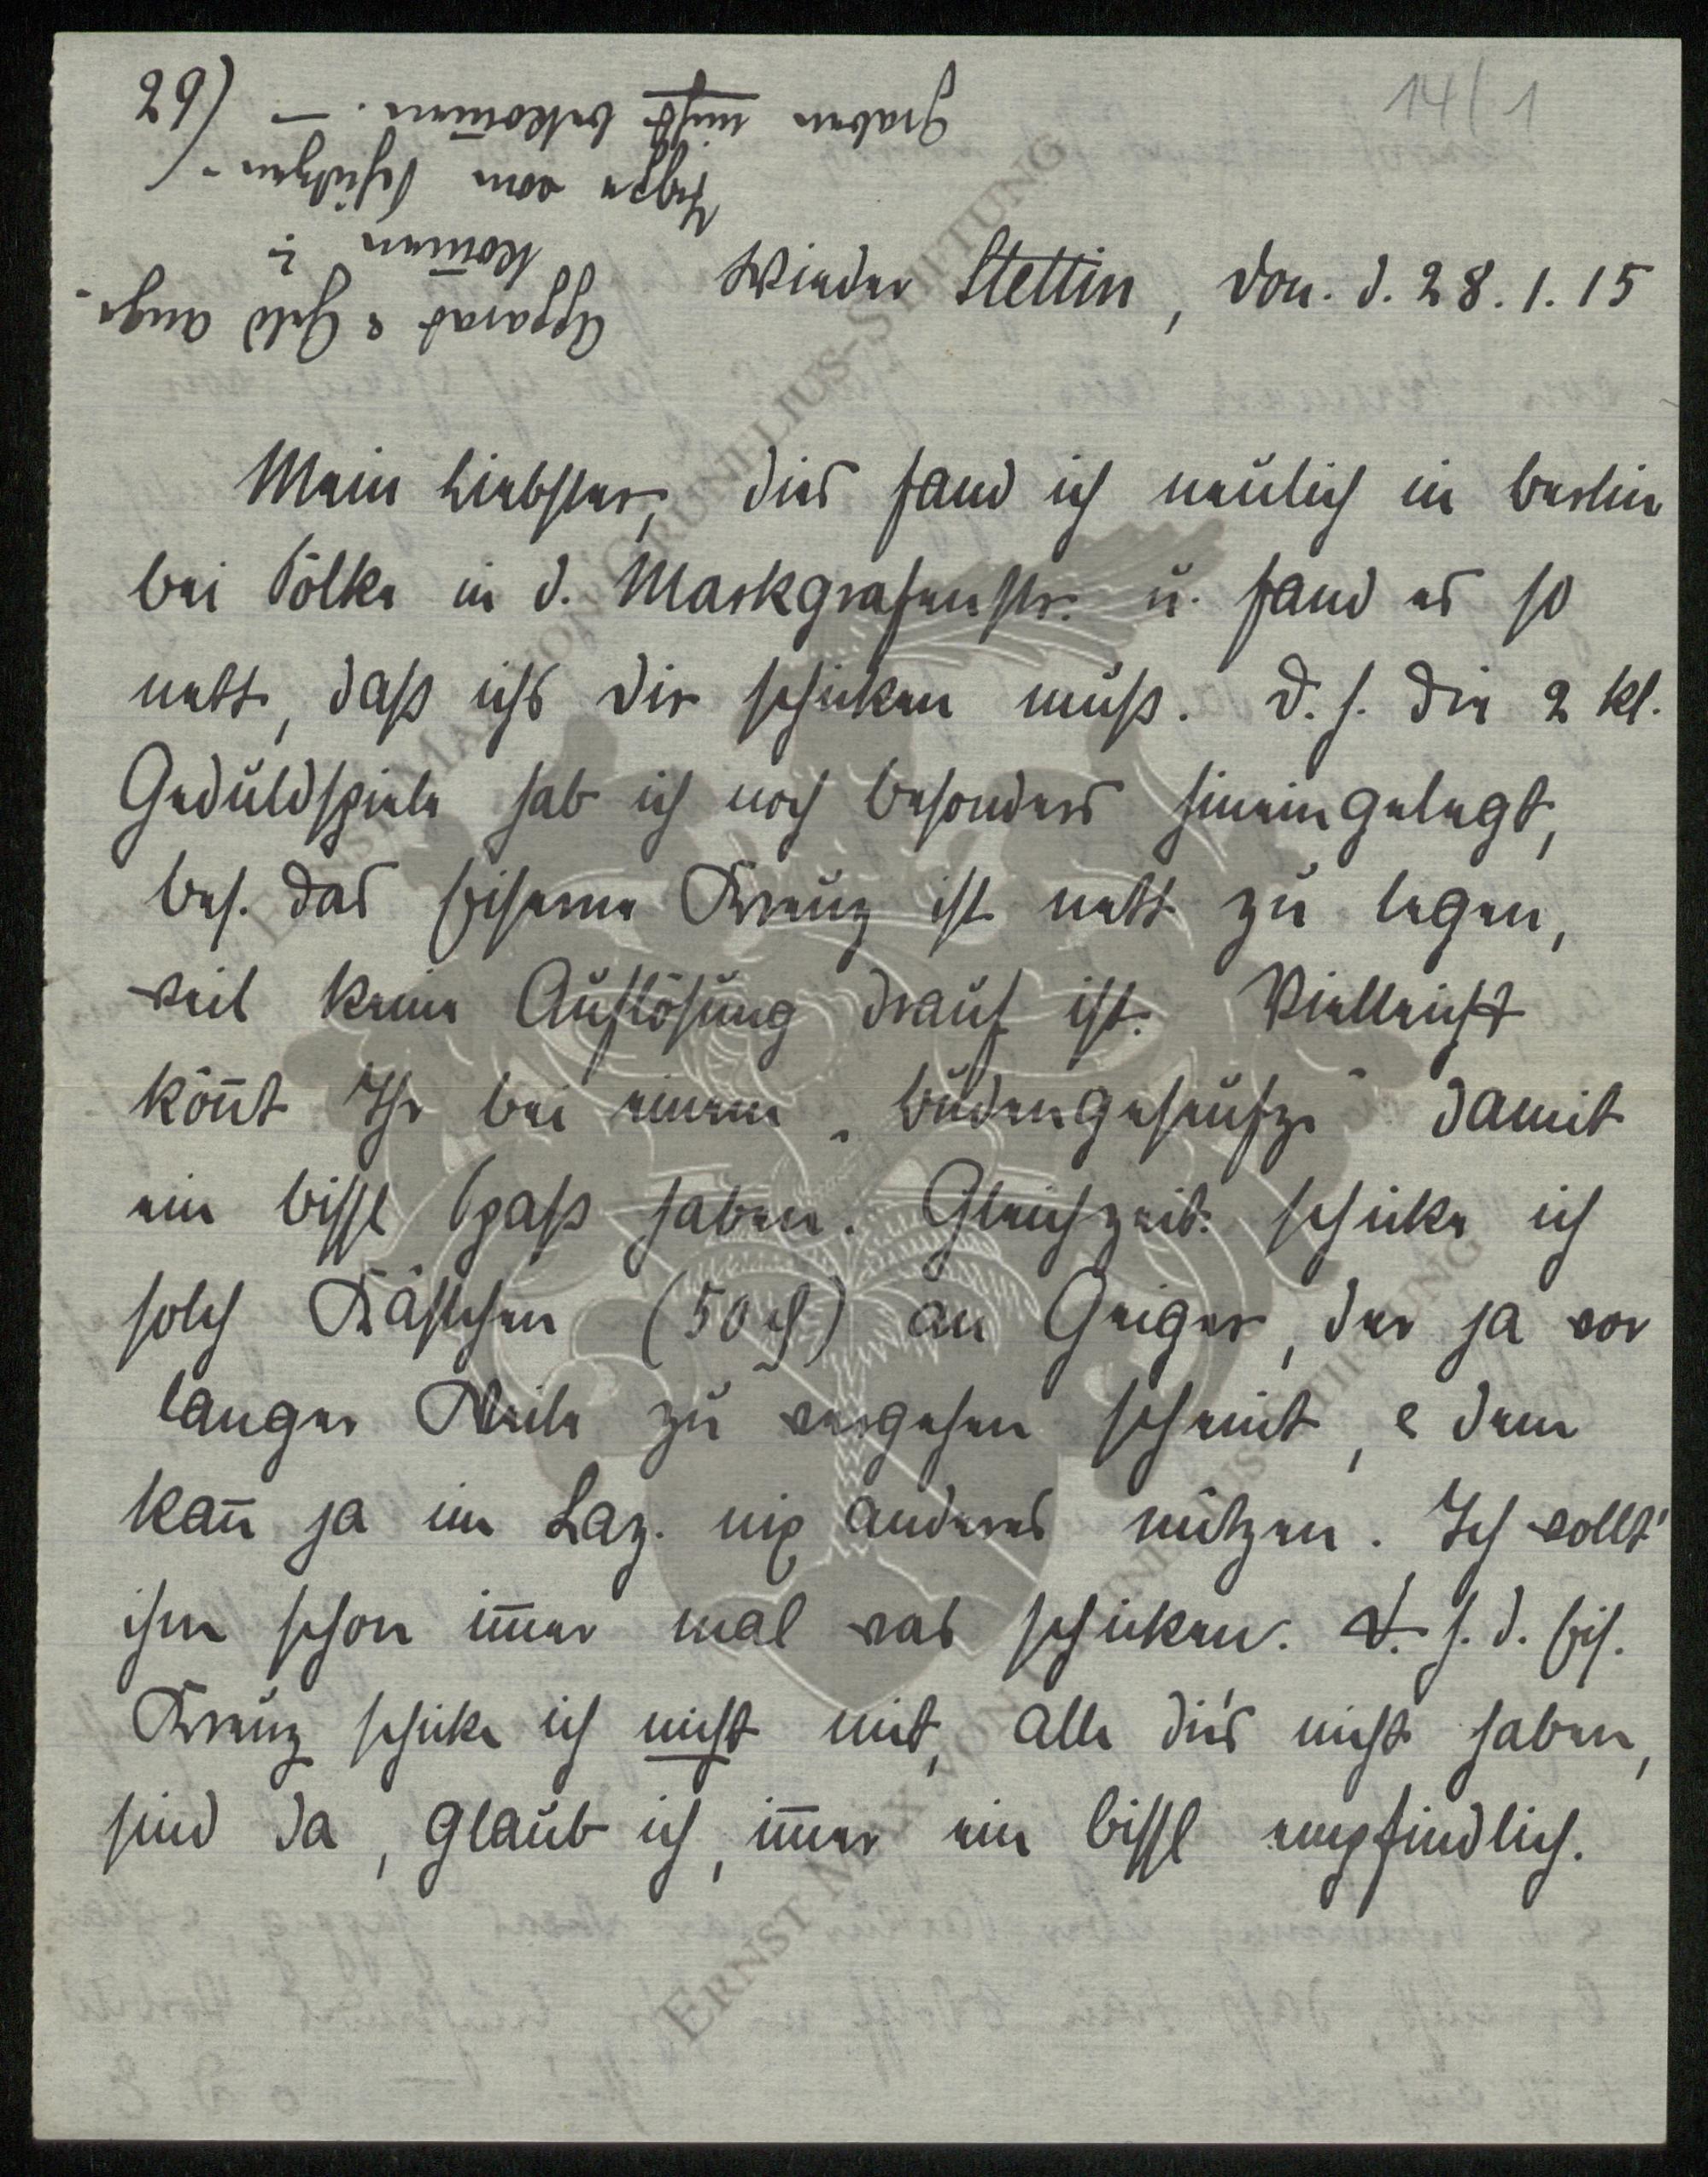 14/1
Apparat & Geld ange-
kommen?
Hoffe vom Schützen-
graben nicht bekommen. — (29
Wieder Stettin, Don. d. 28.1.15
Mein Liebster, dies fand ich neulich in Berlin
bei Sölke in d. Markgrafenstr. u. fand es so
nett, daß ichs dir schicken muß. D. h. die 2 kl.
Geduldspiele hab ich noch besonders hineingelegt,
bes. das Eiserne Kreuz ist nett zu legen,
weil keine Auflösung drauf ist. Vielleicht
kön̄t Ihr bei einem „Budengeseufze“ damit
ein bissl Spaß haben. Gleichzeit. schicke ich
solch Kästchen (50 ₰) an Geiger, der ja vor
langer Weile zu vergehen scheint, & dem
kan̄ ja im Laz. nix anderes nützen. Ich wollt'
ihm schon im̄er mal was schicken. D. h. d. Eis.
Kreuz schicke ich nicht mit, alle die's nicht haben,
sind da, glaub ich, im̄er ein bissl empfindlich.
ERNST MAX VON GRUNELIUS-STIFTUNG
ERNST MAX VON GRUNELIUS-STIFTUNG